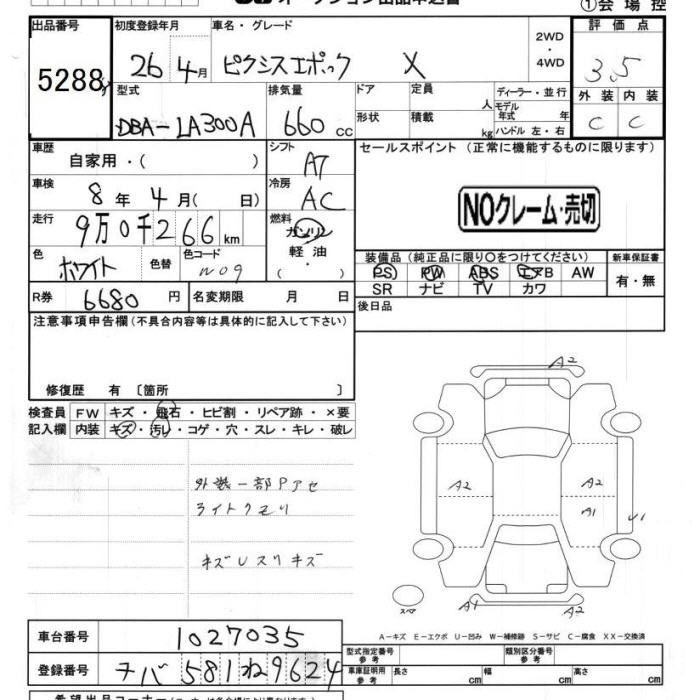 ①会場控
出品番号 初度登録年月 車名・グレード 2WD・4WD 評価点
5288 26年4月 ピクシスエポック X 3.5
型式 排気量 ドア 定員 人 ディーラー・並行 外装 内装
DBA-LA300A 660cc 形状 積載 kg モデル年式 年 ハンドル 左・右 C C
車歴 自家用・( ) シフト AT セールスポイント (正常に機能するものに限ります)
車検 8年4月( 日) 冷房 AC
NOクレーム・売切
走行 9万0千266km 燃料 ガソリン・軽油( )
色 ホワイト 色替 色コード W09
装備品 (純正品に限り○をつけてください) 新車保証書
PS PW ABS エアB AW 有・無
SR ナビ TV カワ
R券 6680円 名変期限 月 日 後日品
注意事項申告欄(不具合内容等は具体的に記入して下さい)
修復歴 有 〔箇所 〕
検査員 FW キズ・飛石・ヒビ割・リペア跡・×要
記入欄 内装 キズ・汚レ・コゲ・穴・スレ・キレ・破レ
A2
外装一部Pアセ
ライトクモリ
A2 A2
A1 U1
キズUスリキズ
スペア A1 A2
A-キズ E-エクボ U-凹み W-補修跡 S-サビ C-腐食 XX-交換済
車台番号 1027035
型式指定番号 参考 類別区分番号 参考
登録番号 チバ581ね9624
車庫証明用 参考 長さ cm 幅 cm 高さ cm